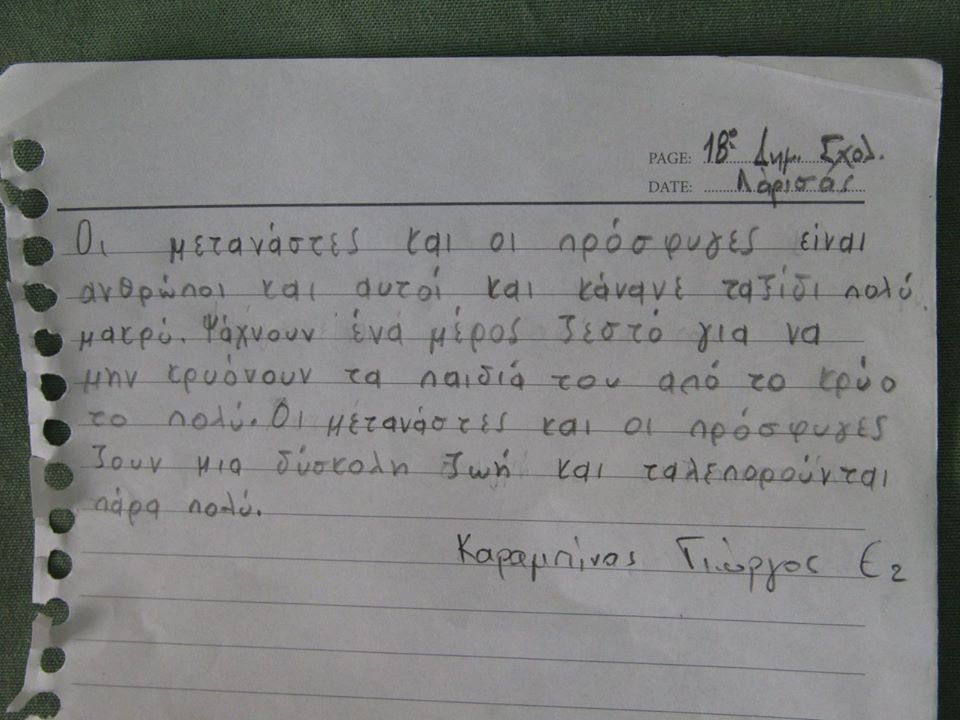 PAGE: 18ο Δημ. Σχολ.
DATE: Λάρισας
Οι μετανάστες και οι πρόσφυγες είναι
ανθρώποι και αυτοί και κάνανε ταξίδι πολύ
μακρύ. Ψάχνουν ένα μέρος ζεστό για να
μην κρυόνουν τα παιδιά του από το κρύο
το πολύ. Οι μετανάστες και οι πρόσφυγες
ζουν μια δύσκολη ζωή και ταλεπορούνται
πάρα πολύ.
Καραμπίνας Γιώργος Ε2